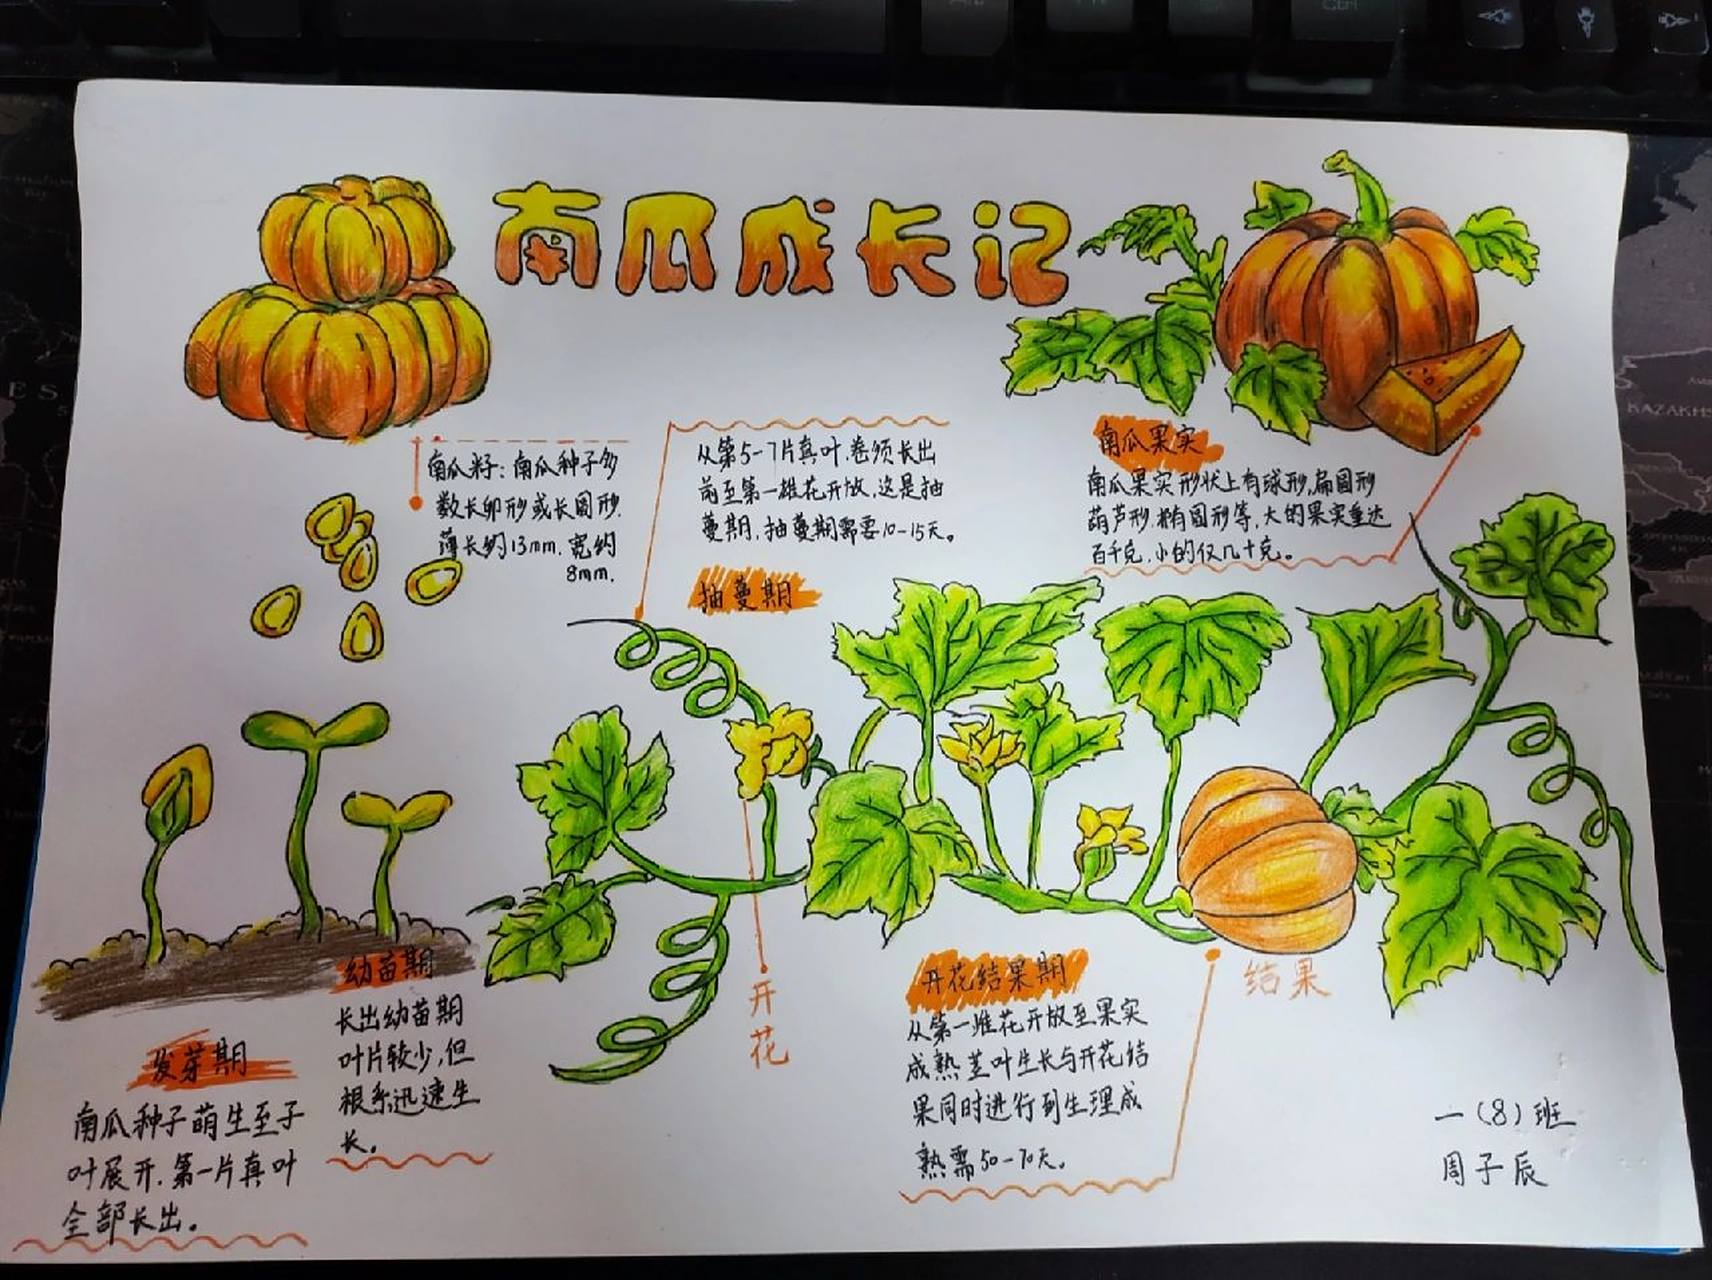 南瓜成长记
南瓜籽：南瓜种子多
数长卵形或长圆形.
薄长约13mm.宽约
8mm.
从第5-7片真叶.卷须长出
前至第一雄花开放.这是抽
蔓期.抽蔓期需要10-15天。
抽蔓期
南瓜果实
南瓜果实形状上有球形,扁圆形
葫芦形.椭圆形等.大的果实重达
百千克.小的仅几十克。
幼苗期
长出幼苗期
叶片较少,但
根系迅速生
长。
发芽期
南瓜种子萌生至子
叶展开.第一片真叶
全部长出。
开
花
开花结果期
从第一雄花开放至果实
成熟茎叶生长与开花结
果同时进行到生理成
熟需50-70天。
结果
一(8)班
周子辰
KAZAKHS